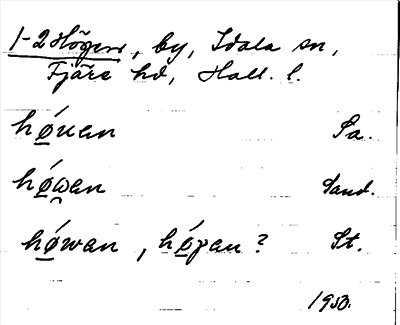 1-2 Högen, by, Idala sn,
Fjäre hd, Hall. l.
hǿuan Sa.
hǿw̯an Sand.
hǿwan, hǿγan? St.
1950.